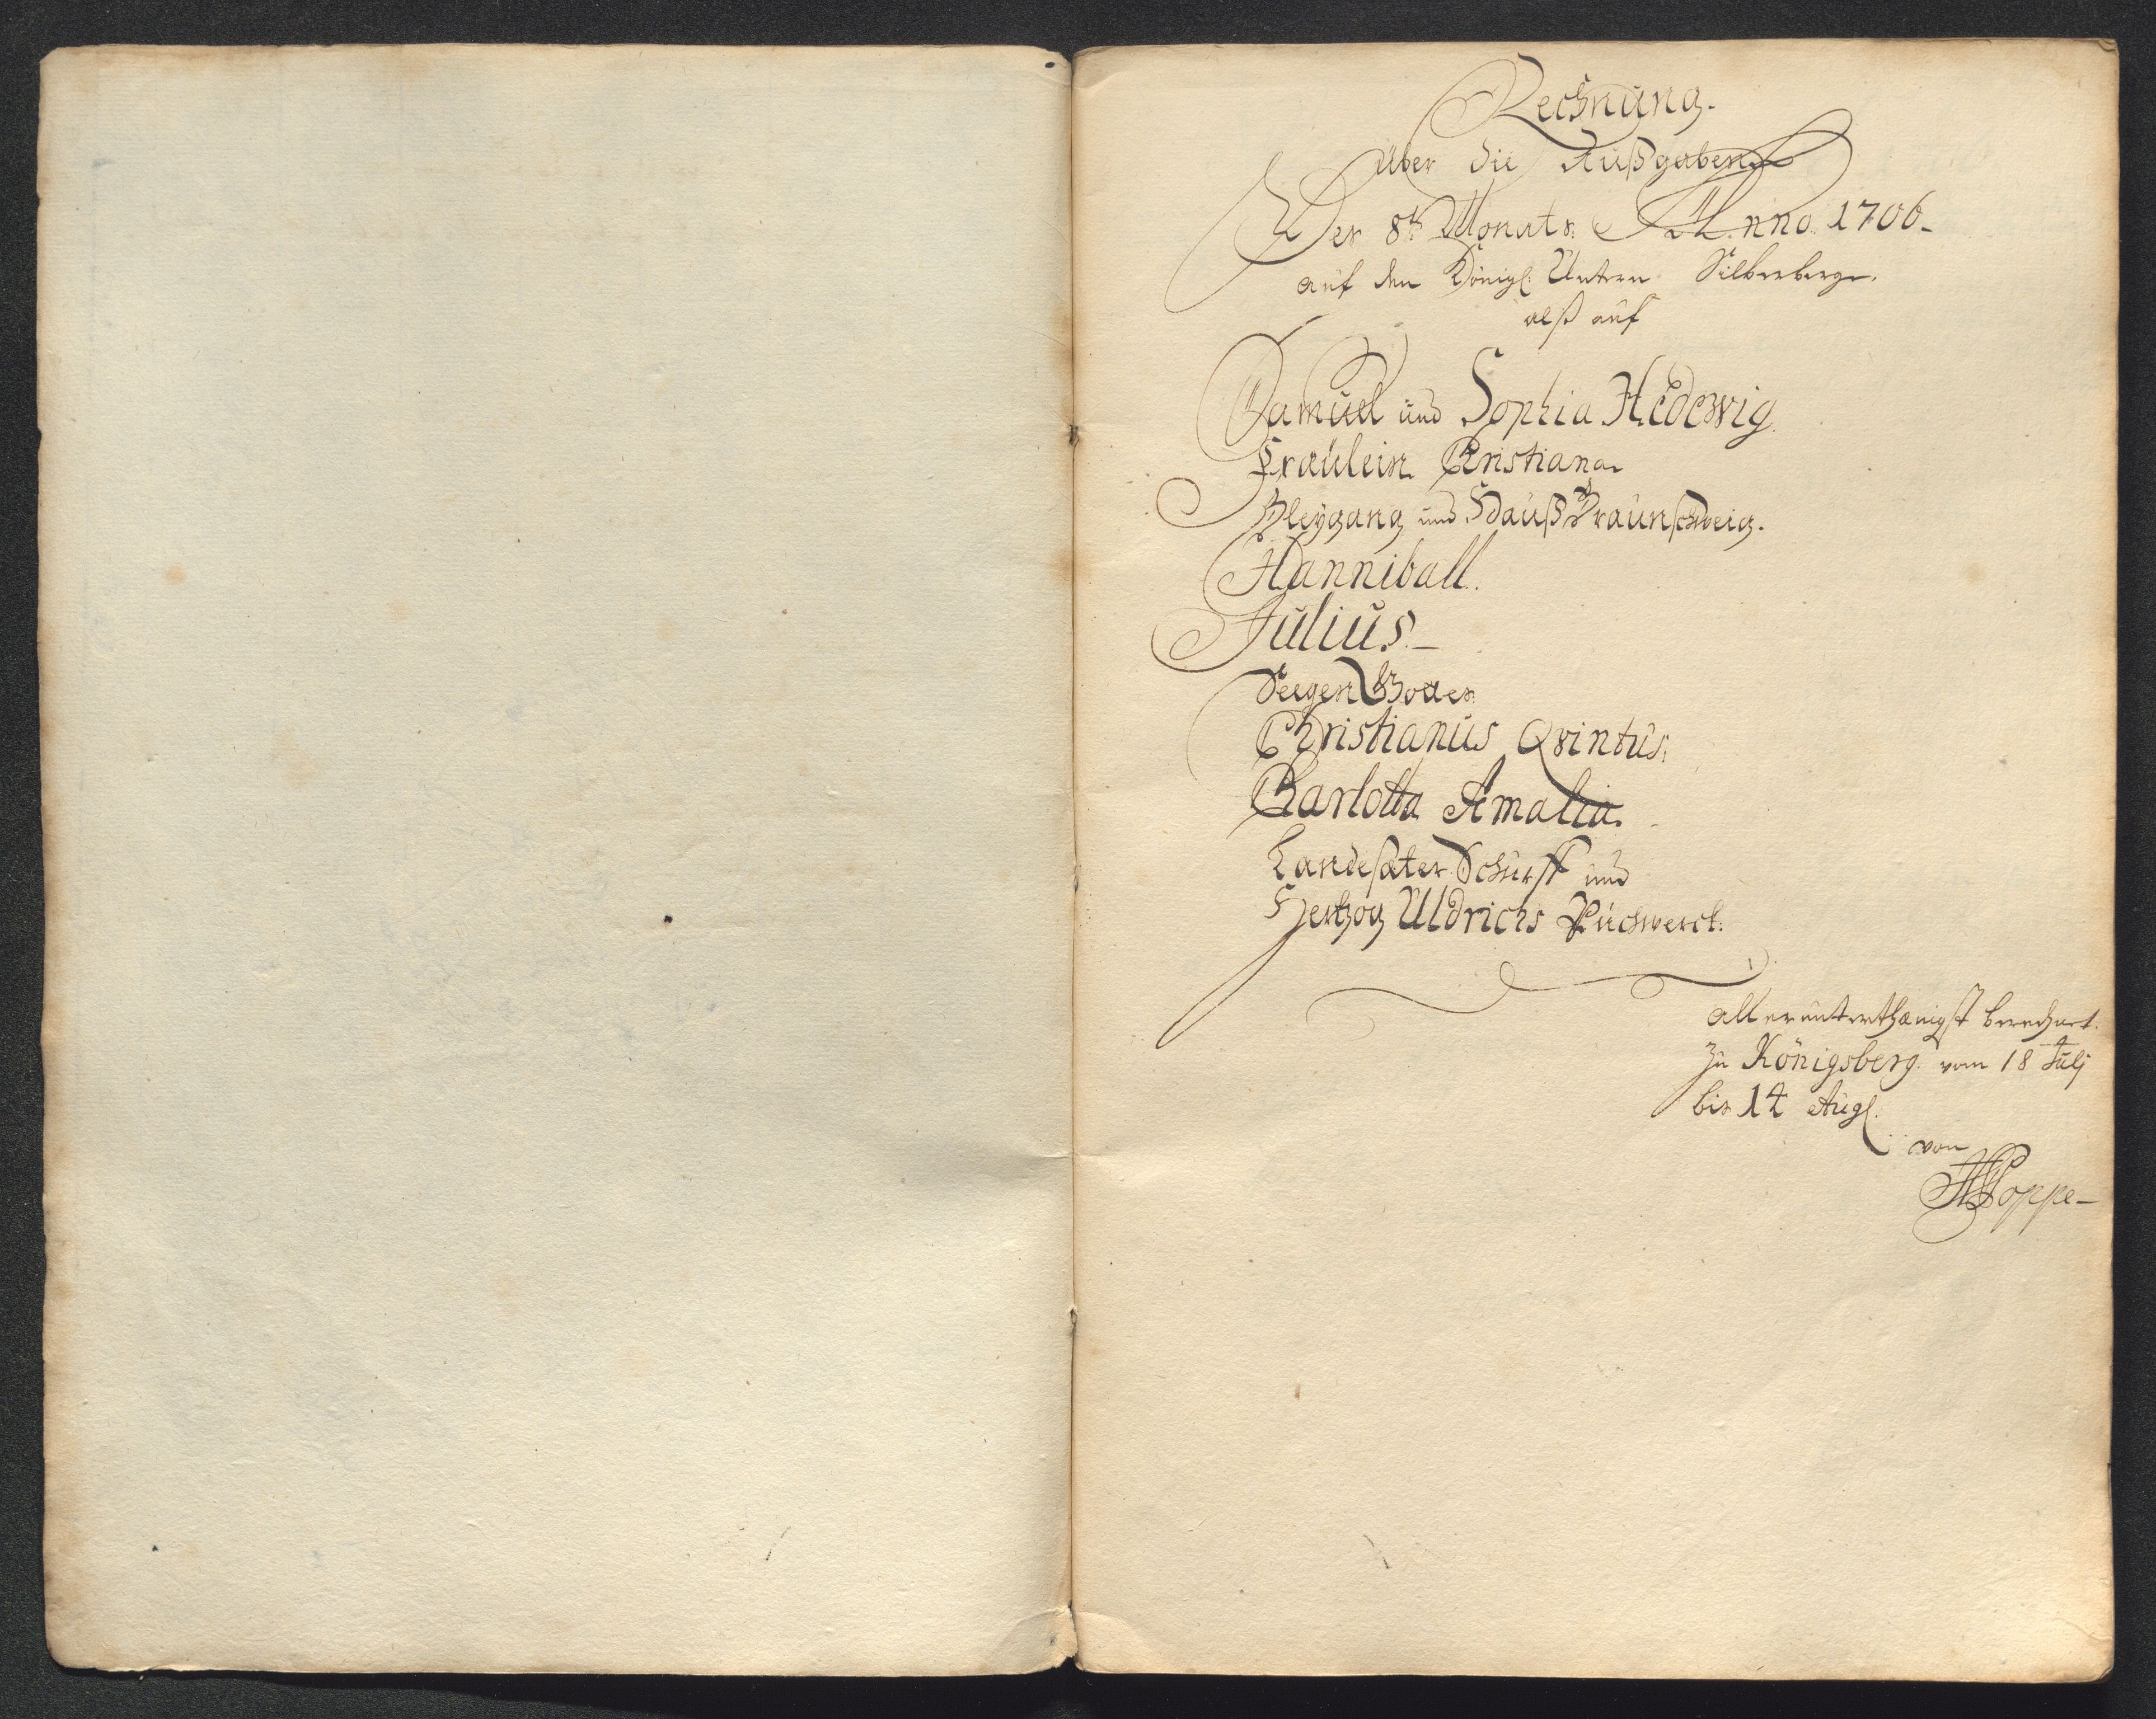 Rechnung.
über die Außgaben
Der 8t Monats Anno 1706.
auf den Königl: Untern Silberberge.
alß auf
Samuel und Sophia Hedewig.
Fraülein Christiana
Bleÿgang und Hauß Braunschweig.
Hanniball.
Julius.
Seegen Gottes
Christianus Qvintus.
Charlotta Amalia.
Landes Schurff und
Hertzog Uldrichs Puchwerck.
Allerunterthänigst berechnet.
Zu Königsberg. vom 18 Julj
bis 14 Augl.
von
HPoppe